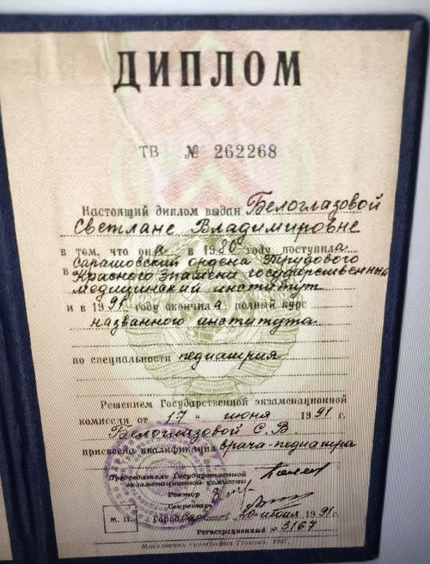 ДИПЛОМ
ТВ № 262268
Настоящий диплом выдан Белоглазовой
Светлане Владимировне
в том, что она в 19 году поступила
в Саратовский ордена Трудового
Красного Знамени государственный
медицинский институт
и в 1991 году окончила полный курс
названного института
по специальности педиатрия
Решением Государственной экзаменационной
комиссии от "17" июня 1991 г.
Белоглазовой С. В.
присвоена квалификация врача-педиатра
Председатель Государственной
экзаменационной комиссии
Ректор
Секретарь
М. П. Город Саратов июня 1991 г.
Регистрационный № 3167
Московская типография Гознака.